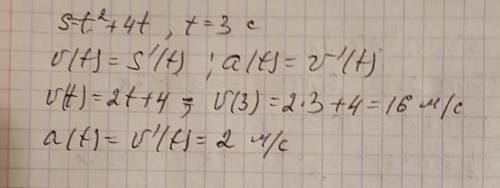 s=t²+4t , t=3 с
v(t)=s'(t) ; a(t)=v'(t)
v(t)=2t+4 ; v(3)=2·3+4=16 м/с
a(t)=v'(t)=2 м/с